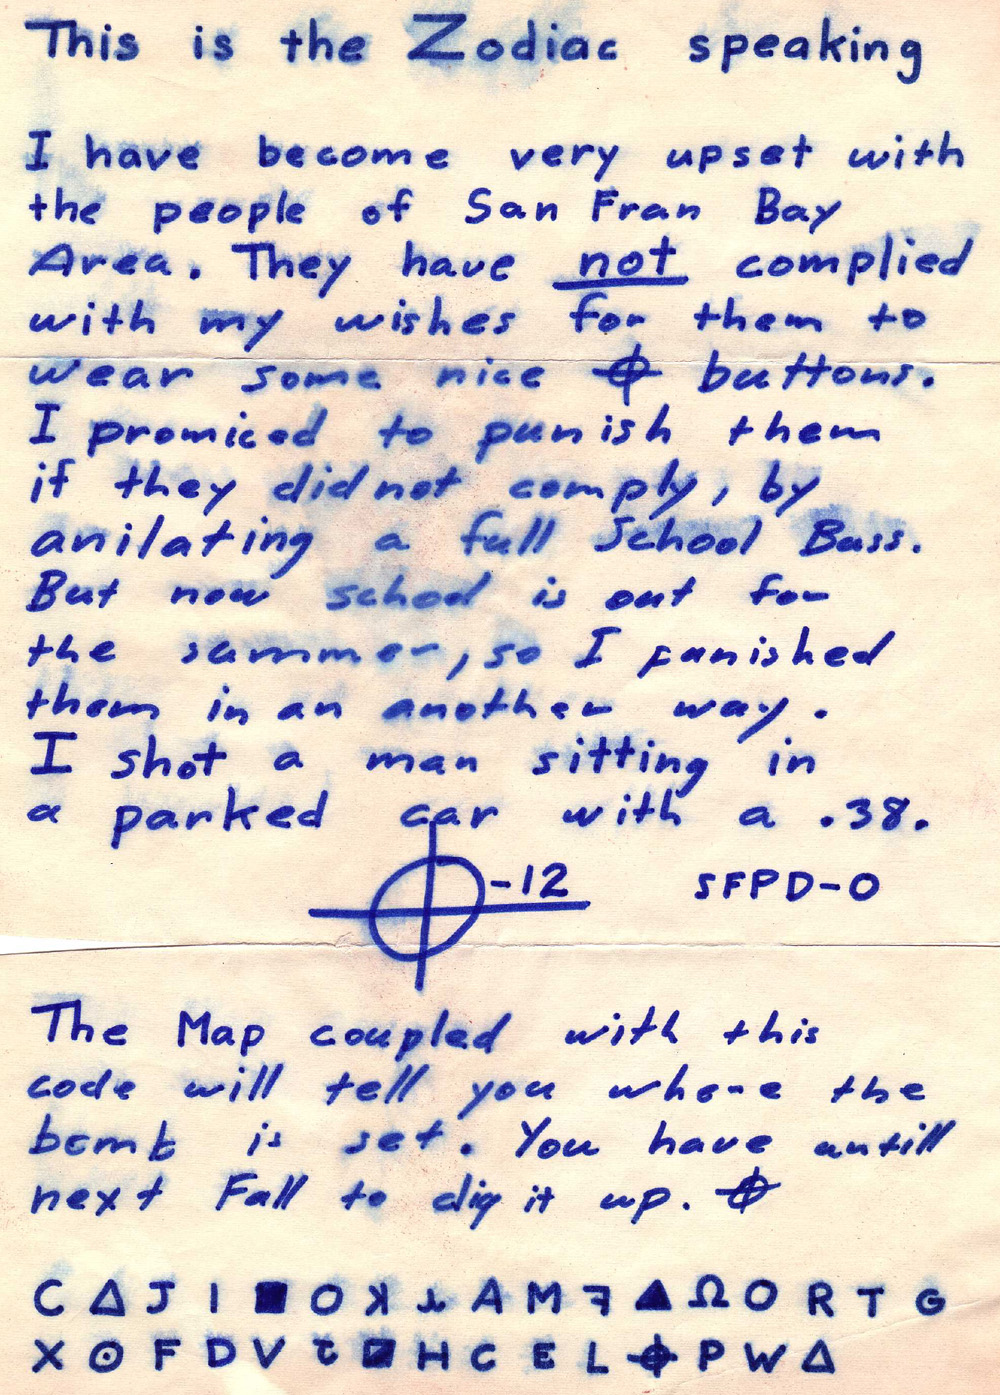 This is the Zodiac speaking
I have become very upset with
the people of San Fran Bay
Area. They have not complied
with my wishes for them to
wear some nice ⌖ buttons.
I promiced to punish them
if they did not comply, by
anilating a full School Buss.
But now school is out for
the summer, so I punished
them in an another way.
I shot a man sitting in
a parked car with a .38.
⌖-12 SFPD-0
The Map coupled with this
code will tell you where the
bomb is set. You have untill
next Fall to dig it up. ⌖
C Δ J I ■ O ꓘ A M ꟻ ▲ Ω O R T G
X ⊙ F D V ◪ H C E L ⌖ P W Δ